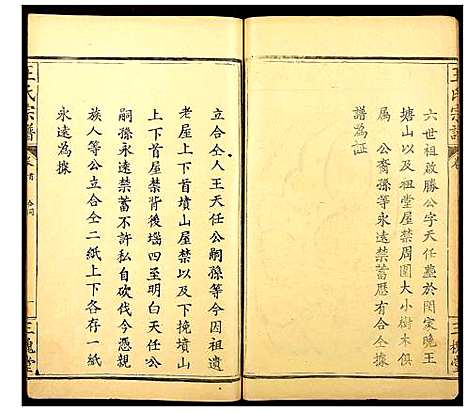 王氏宗譜
卷
三槐堂
六世祖啟勝公字天任塟於閔家晚王
塘山以及祖堂屋禁周圍大小樹木俱
属公裔孫等永遠禁蓄歷有合仝據
譜為証
立合仝人王天任公嗣孫等今因祖遺
老屋上下首墳山屋禁以及下挽墳山
上下首屋禁背後堖四至明白天任公
嗣孫永遠禁蓄不許私自砍伐今憑
族人等公立合仝二紙上下各存一紙
永遠為據
王氏宗譜
卷首 合同
三槐堂